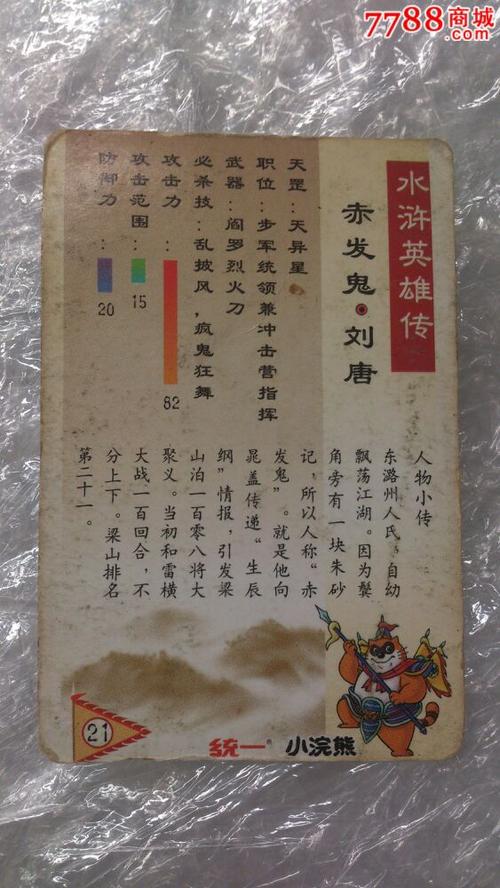 7788商城
水浒英雄传
赤发鬼·刘唐
天罡：天异星
职位：步军统领兼冲击营指挥
武器：阎罗烈火刀
必杀技：乱披风，疯鬼狂舞
攻击力：82
攻击范围：15
防御力：20
人物小传
东潞州人氏，自幼
飘荡江湖。因为鬓
角旁有一块朱砂
记，所以人称“赤
发鬼”。就是他向
晁盖传递“生辰
纲”情报，引发梁
山泊一百零八将大
聚义。当初和雷横
大战一百回合，不
分上下。梁山排名
第二十一。
21
統一 小浣熊